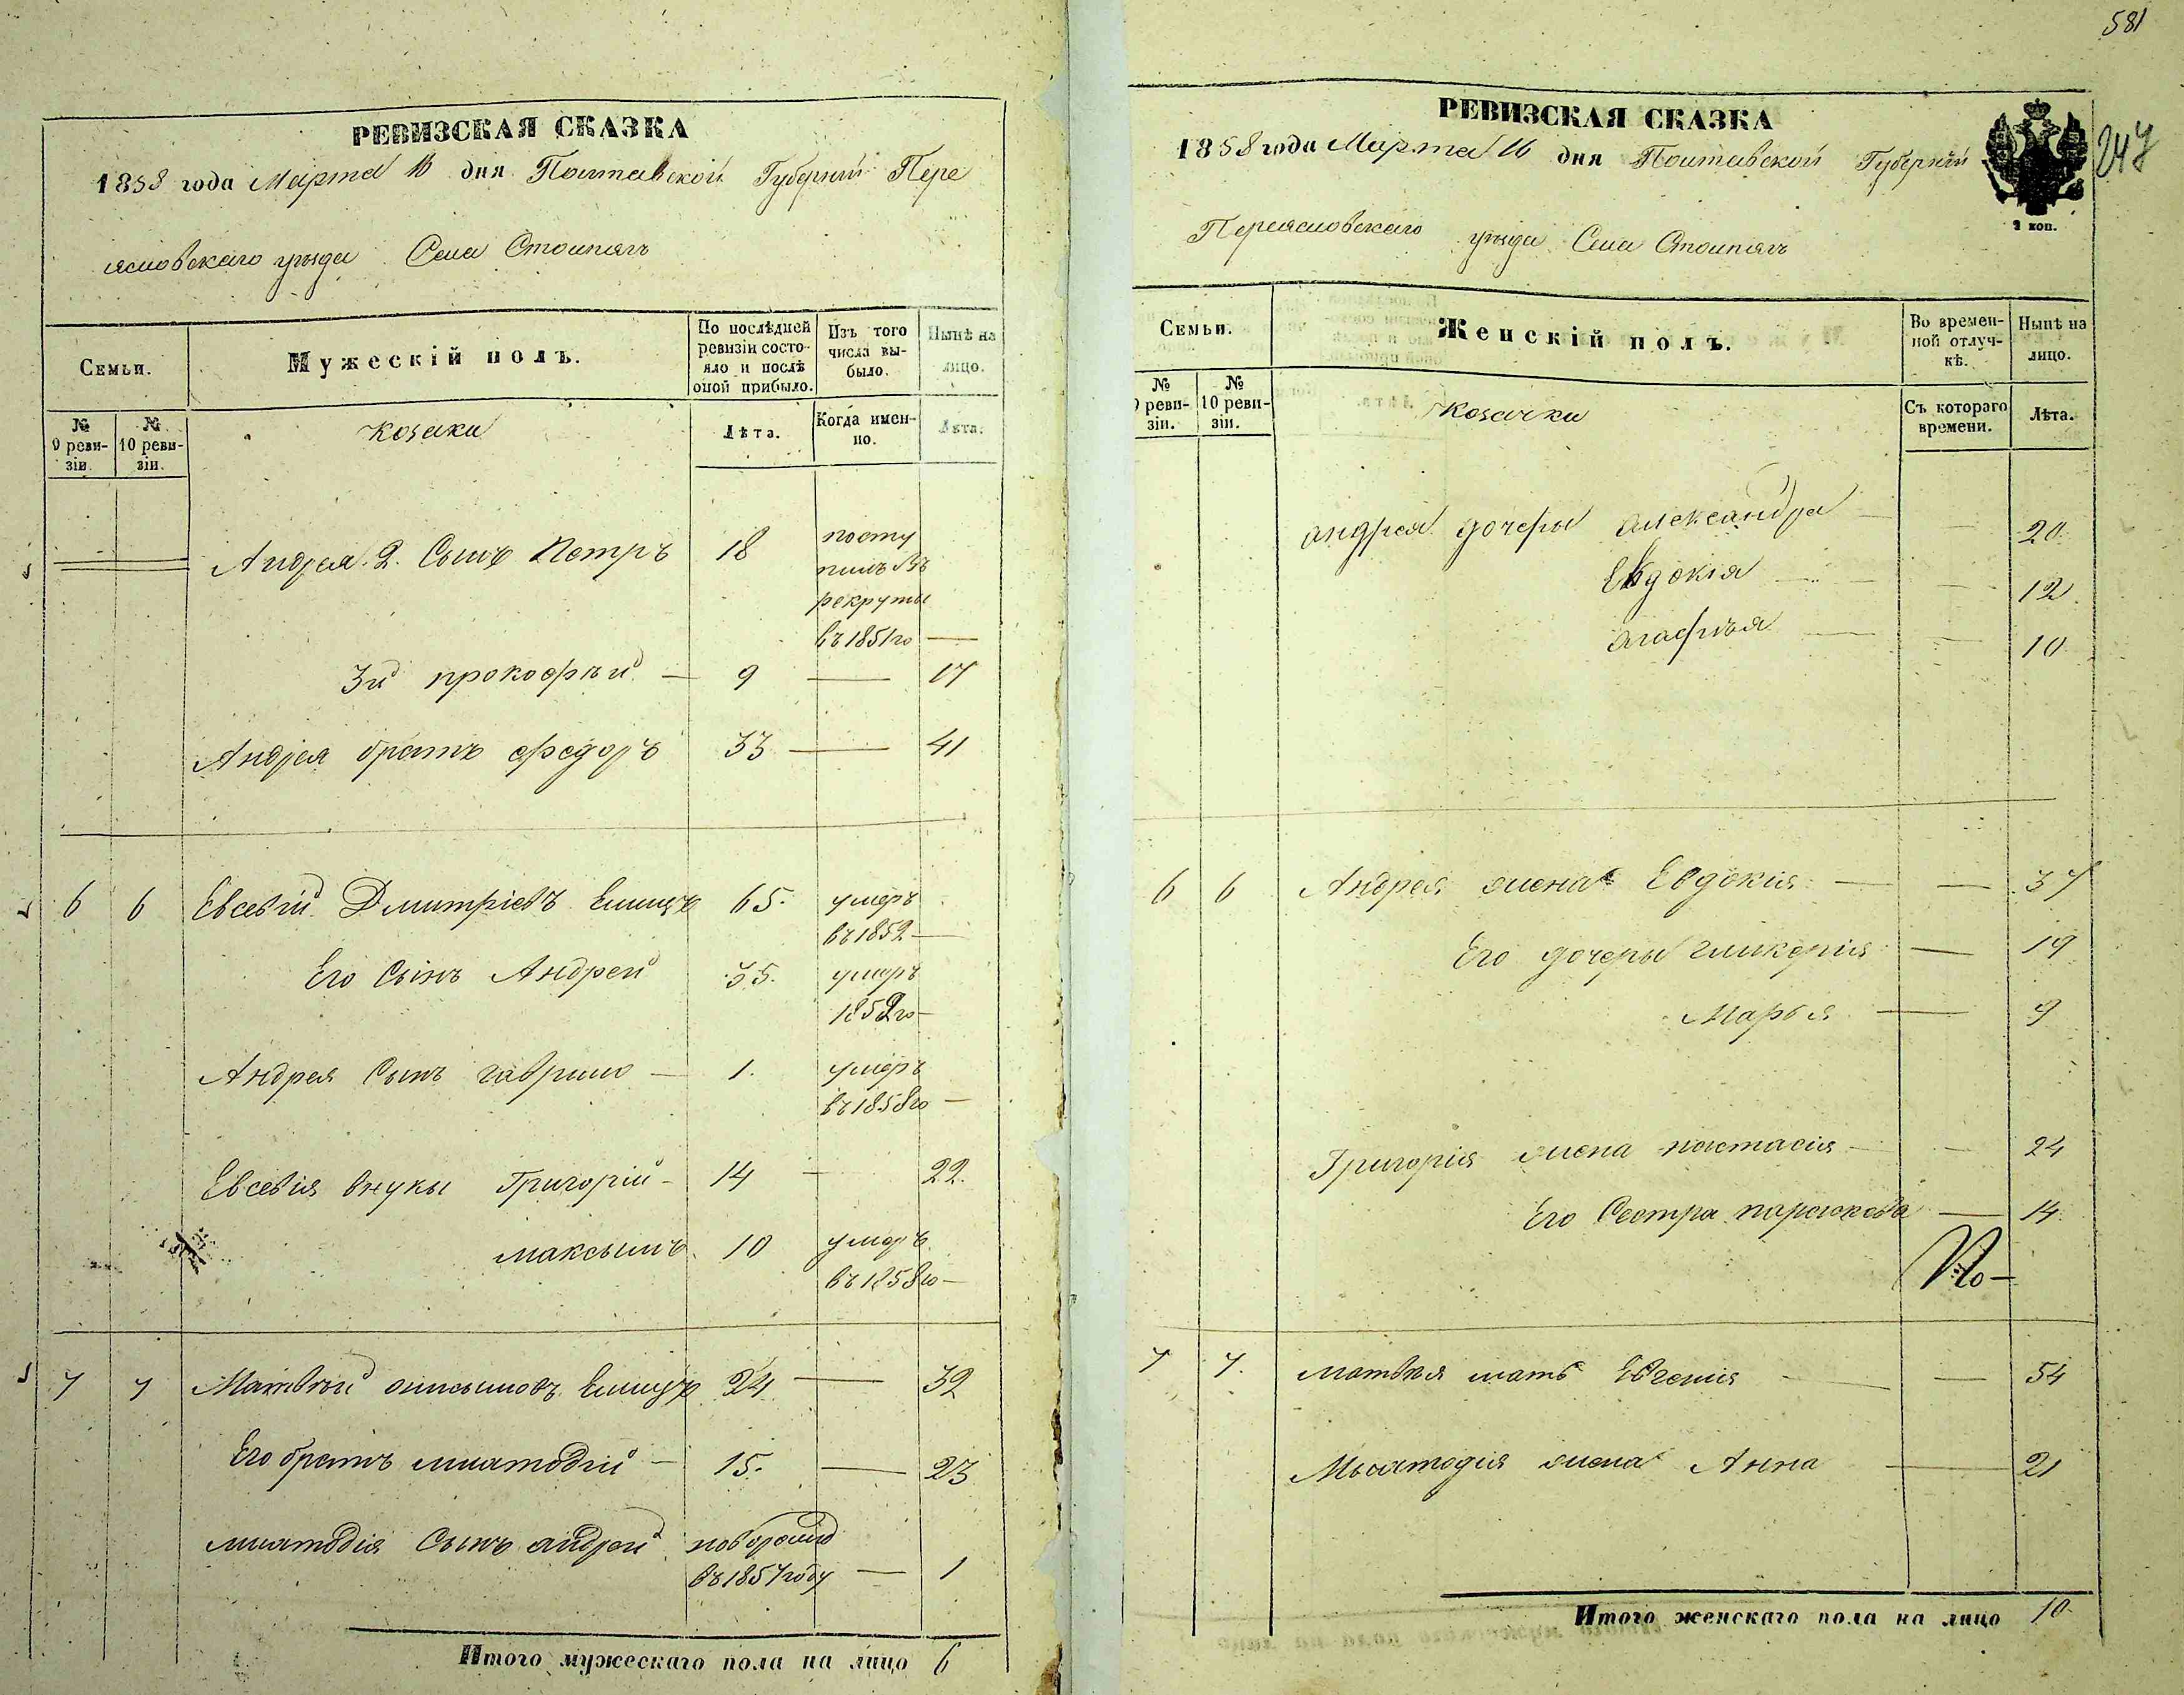 581
247
РЕВИЗСКАЯ СКАЗКА
1858 года Марта 16 дня Полтавской Губернии Пере
яславского уезда Села Стоипягъ
Семьи.
Мужескій полъ.
По послѣдней ревизіи состояло и послѣ оной прибыло.
Изъ того числа выбыло.
Нынѣ на лицо.
№ 9 ревизіи.
№ 10 ревизіи.
Козаки
Лѣта.
Когда именно.
Лѣта.
Андрея 2. Сынъ Петръ 18 посту
пилъ въ
рекруты
въ 1851го —
3й прокофѣй — 9 — 17
Андрея братъ федоръ 33 — 41
6 6 Евсевій Дмитріевъ 65. умеръ
въ 1852 —
Его Сынъ Андрей 35. умеръ
1852го —
Андрея Сынъ гаврило — 1. умеръ
въ 1858го —
Евсевія внуки Григорій — 14 — 22.
максымъ 10 умеръ
въ 1858го —
7 7 Матвѣй 24 — 32
Его братъ 15. — 23
Сынъ андрей новорожд
въ 1857 году — 1
Итого мужескаго пола на лицо 6
РЕВИЗСКАЯ СКАЗКА
1858 года Марта 16 дня Полтавской Губерніи
2 коп.
Переясловского уезда Села Стоипягъ
Семьи.
Женскій полъ.
Во временной отлучкѣ.
Нынѣ на лицо.
№ 9 ревизіи.
№ 10 ревизіи.
Козачки
Съ котораго времени.
Лѣта.
андрея дочеры александра — — 20
Евдокія — — 12
агафья — — 10
6 6 Андрея жена Евдокія — — 37
Его дочеры гликерія — 19
Марья — 9
Григорія жена настасія — — 24
Его Сестра параскева — 14
7 7. матвѣя мать Евгенія — — 54
жена Анна — 21
Итого женскаго пола на лицо 10